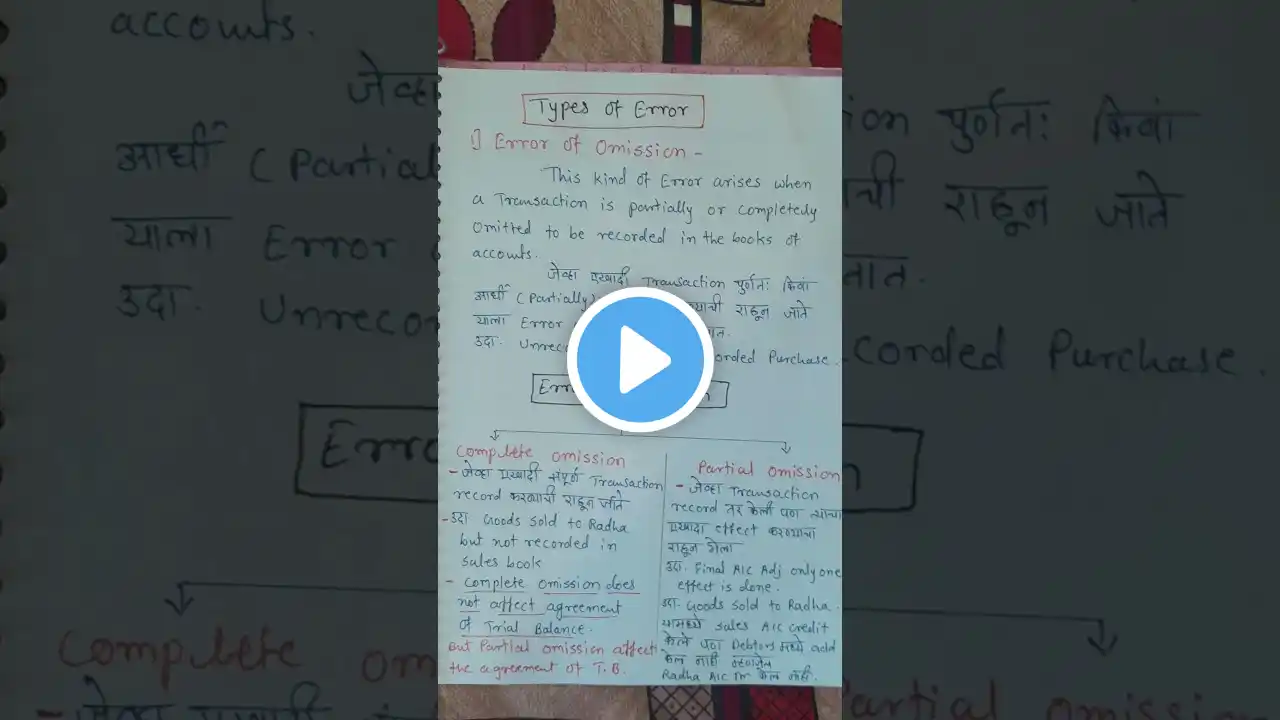 Types of Error
1) Error of Omission -
This kind of Error arises when
a Transaction is partially or completely
omitted to be recorded in the books of
accounts.
जेव्हा एखादी Transaction पुर्णतः किंवा
आर्धी (Partially) राहून जाते
याला Error
उदा. Purchase.
complete omission
- जेव्हा एखादी संपूर्ण Transaction
record करण्याची राहून जाते
- उदा Goods sold to Radha
but not recorded in
sales book
- complete omission does
not affect agreement
of Trial Balance.
But Partial omission affect
the agreement of T.B.
Partial omission
- जेव्हा Transaction
record तर केली पण त्याचा
एखादा effect करण्याचा
राहून गेला
उदा. Final A/C Adj only one
effect is done.
उदा. Goods sold to Radha.
यामध्ये sales A/C credit
केले पण Debtors मध्ये add
केल नाही म्हणजेच
Radha A/C Dr केल नाही.